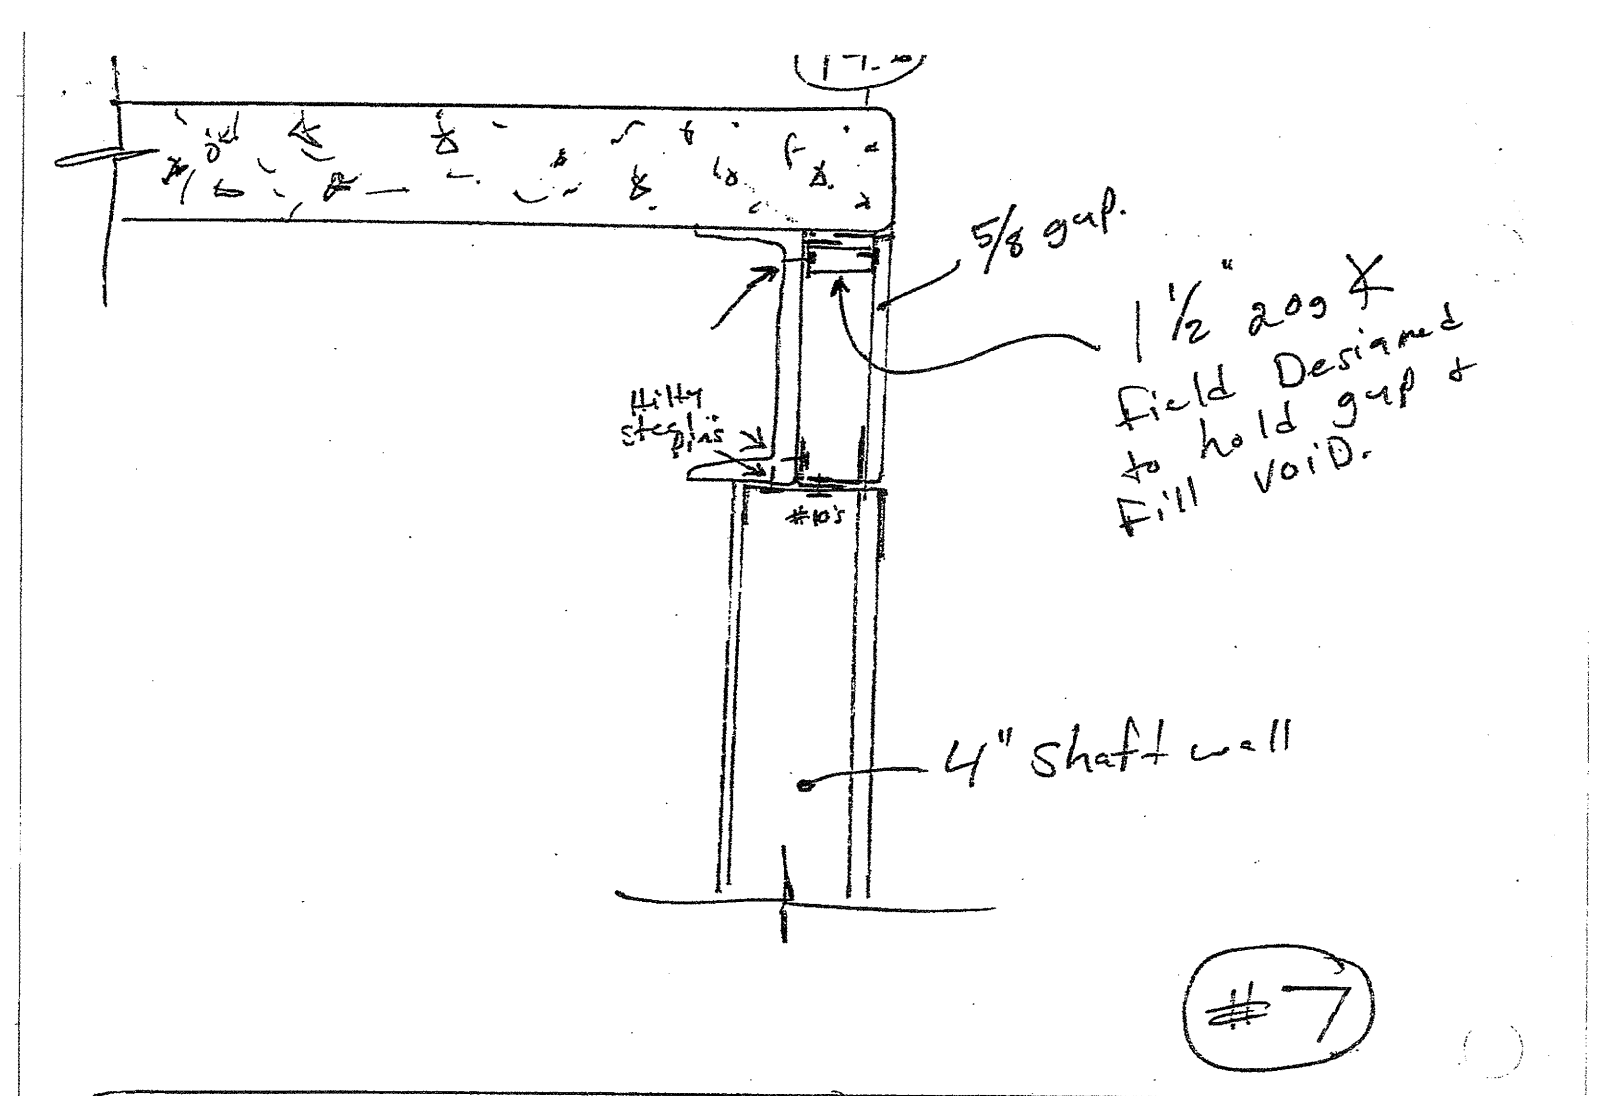 5/8 gap.
1 1/2" 20g
Field Designed
to hold gap &
Fill VOID.
Hilty
steel
pins
#10's
4" Shaft wall
#7